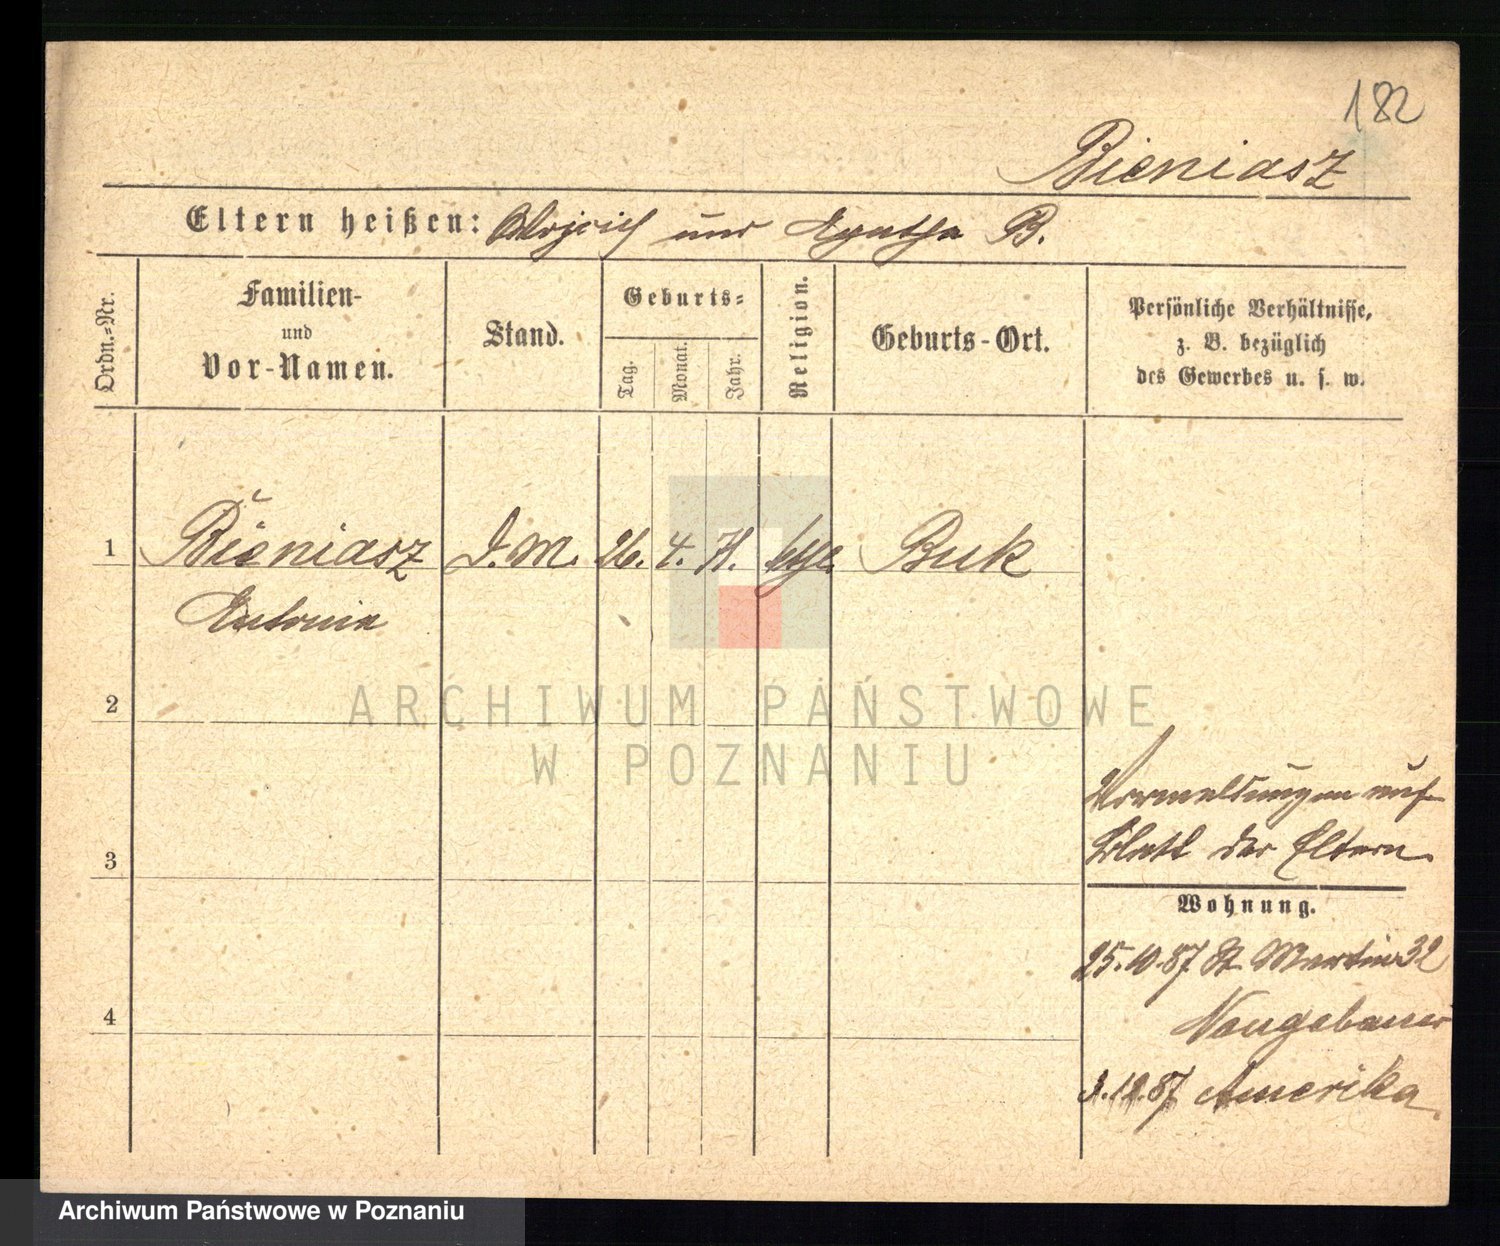 182
Bieniasz
Eltern heißen: und Agatha B.
Ordn.-Nr.
Familien-
und
Vor-Namen.
Stand.
Geburts-
Tag.
Monat.
Jahr.
Religion.
Geburts-Ort.
Persönliche Verhältnisse,
z. B. bezüglich
des Gewerbes u. s. w.
1 Bieniasz D.M. 26. 4. 71. Buk
Antonie
2
3
4
Vormeldungen auf
Blatt der Eltern
Wohnung.
25.10.87 St. Martin 32
Neugebauer
3.12.87 Amerika
ARCHIWUM PAŃSTWOWE
W POZNANIU
Archiwum Państwowe w Poznaniu